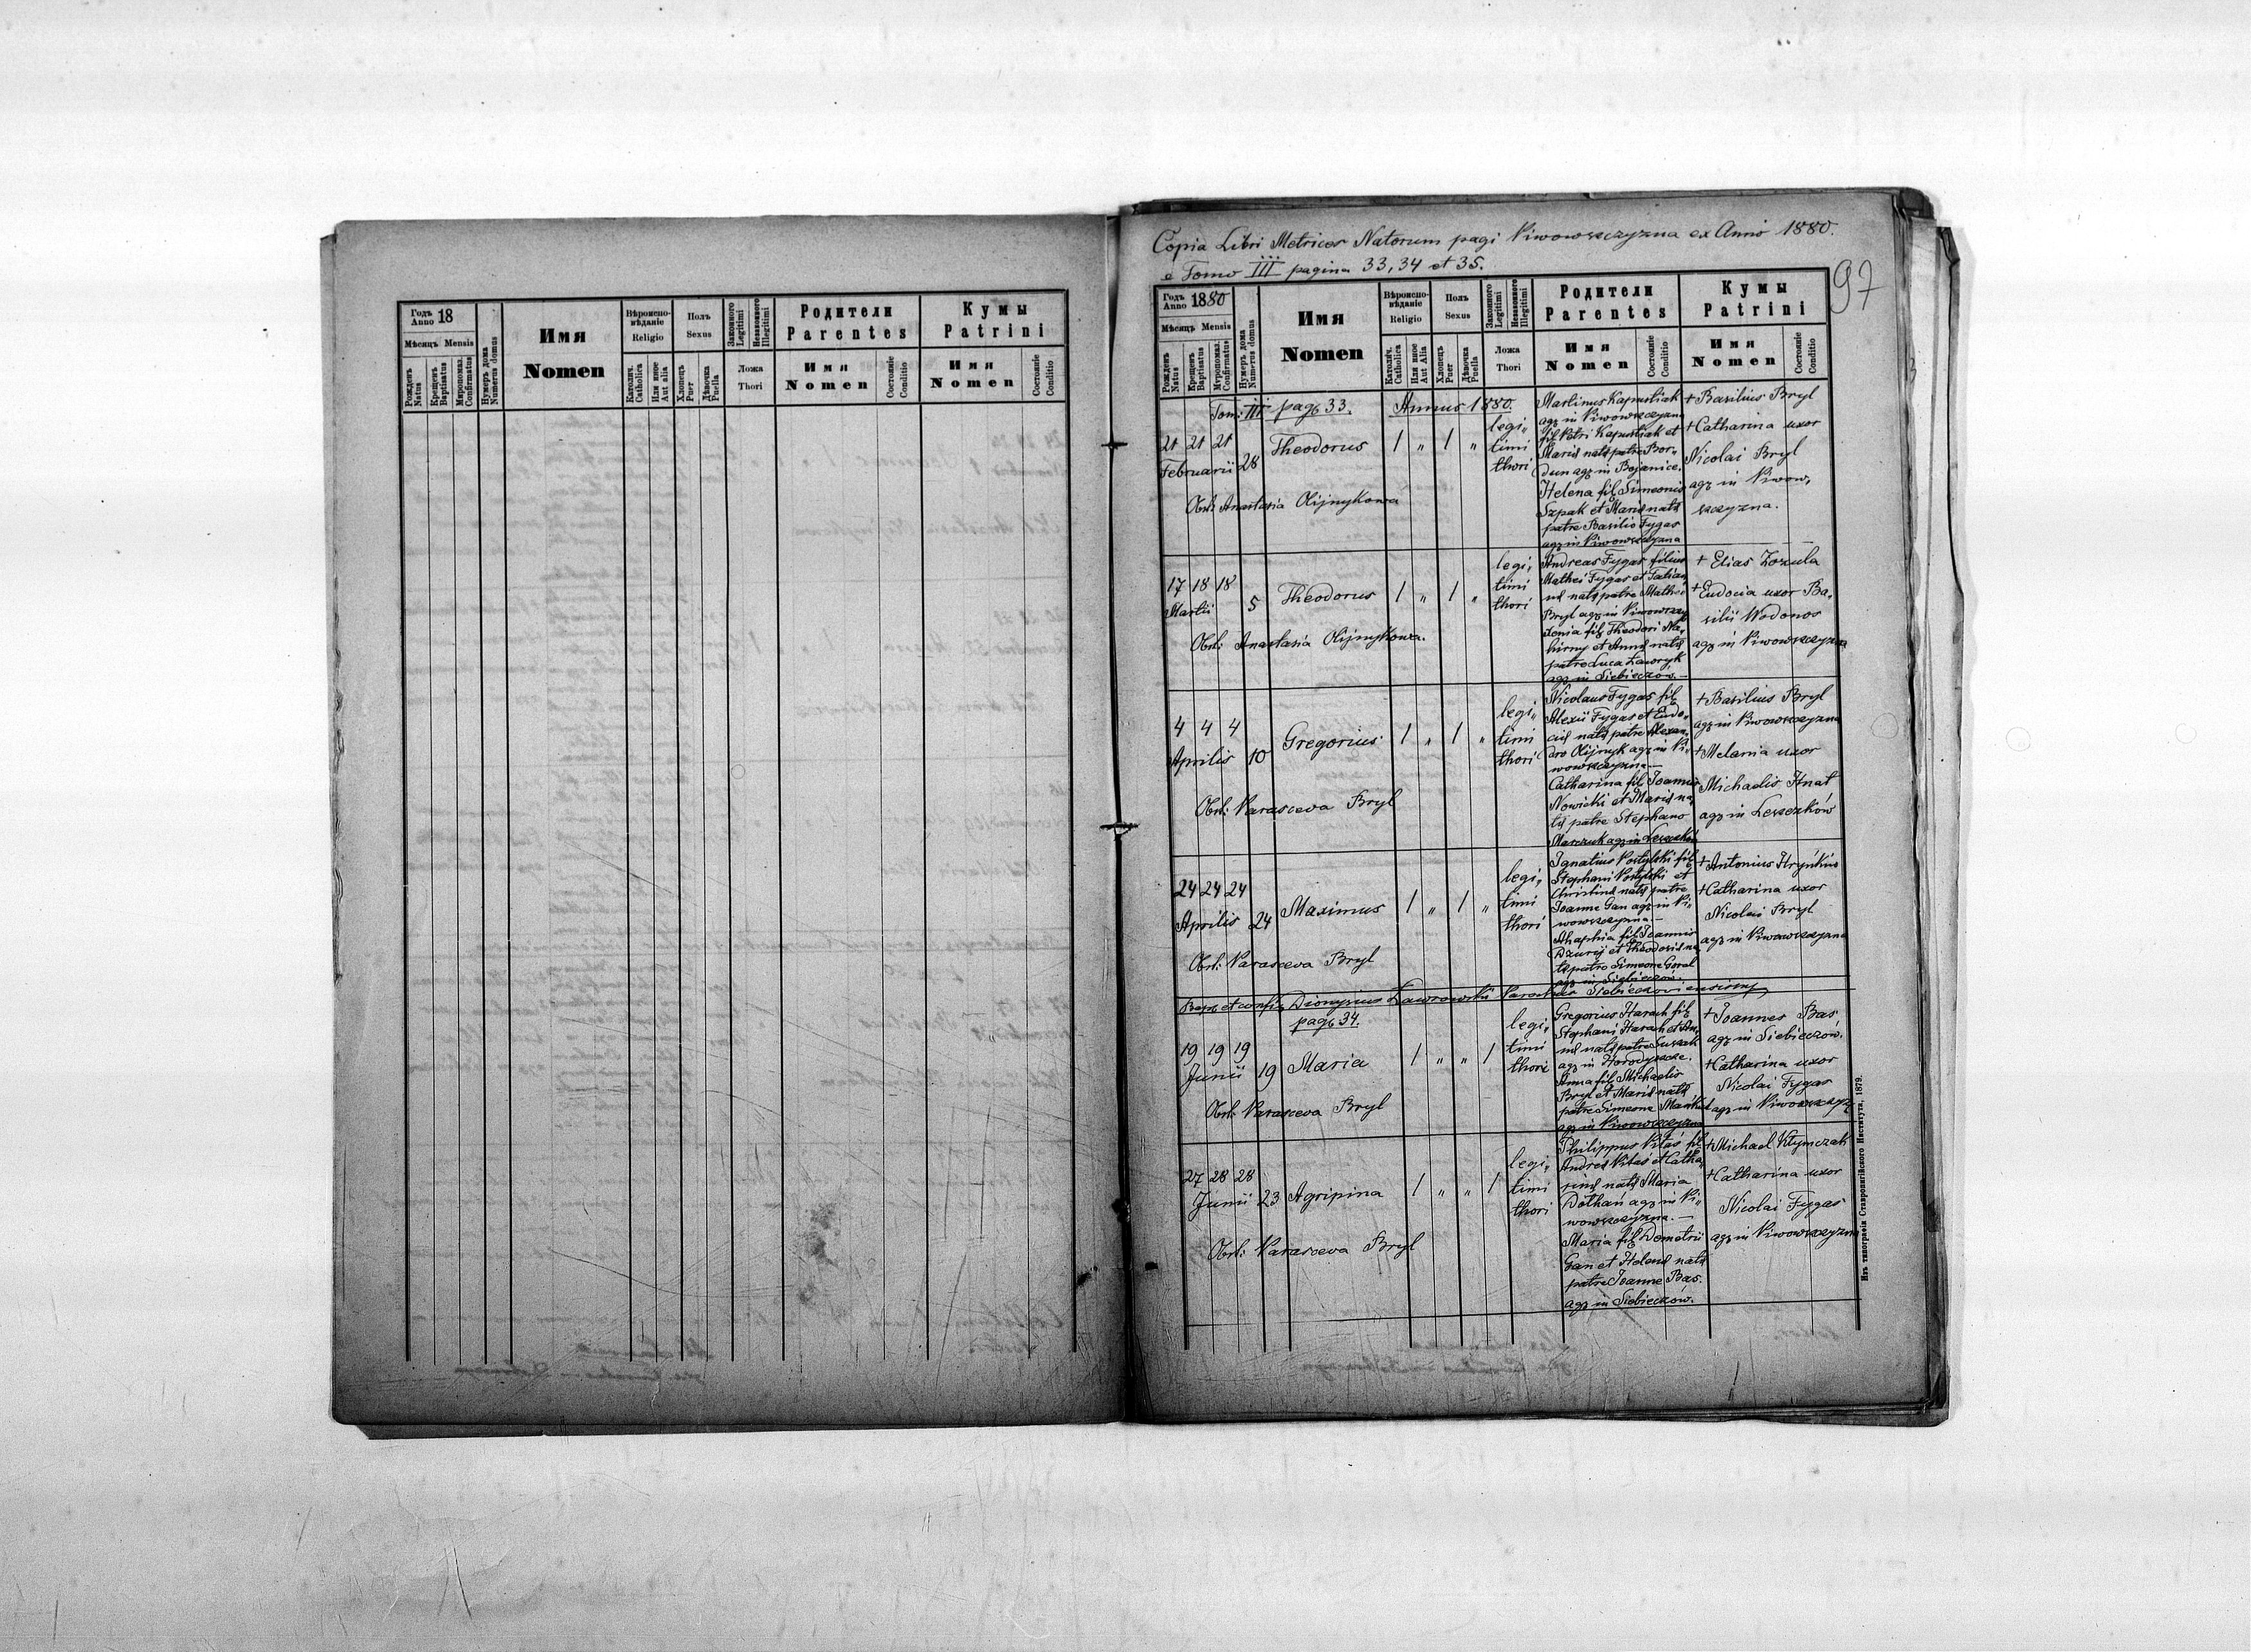 Годъ Anno 18
Мѣсяцъ Mensis
Рожденъ Natus
Крещенъ Baptisatus
Миропомаз. Confirmatus
Нумеръ дома Numerus domus
Имя
Nomen
Вѣроиспо-
вѣданіе
Religio
Католич. Catholica
Или иное Aut alia
Полъ
Sexus
Хлопець Puer
Дѣвочка Puella
Законного Legitimi
Незаконного Illegitimi
Ложа
Thori
Родители
Parentes
Имя
Nomen
Состояніе Conditio
Кумы
Patrini
Имя
Nomen
Состояніе Conditio
Copia Libri Metrices Natorum pagi Piwowszczyzna ex Anno 1880.
e Tomo III pagina 33, 34 et 35.
97
Годъ Anno 1880
Мѣсяцъ Mensis
Рожденъ Natus
Крещенъ Baptisatus
Муропомаз. Confirmatus
Нумеръ дома Numerus domus
Имя
Nomen
Вѣроиспо-
вѣданіе
Religio
Католич. Catholica
Или иное Aut Alia
Полъ
Sexus
Хлопець Puer
Дѣвочка Puella
Законного Legitimi
Незаконного Illegitimi
Ложа
Thori
Родители
Parentes
Имя
Nomen
Состояніе Conditio
Кумы
Patrini
Имя
Nomen
Состояніе Conditio
Tom: III pag. 33. Annus 1880.
21 21 21
Februarii 28 Theodorus 1 „ 1 „
legi„
timi
thori
Martinus Kapustiak
agr. in Piwowszczyzna
fil. Petri Kapustiak et
Mariæ natæ patre Bor„
dun agr. in Bojanice.
Helena fil. Simeonis
Szpak et Mariæ natæ
patre Basilio Fygas
agr. in Piwowszczyzna
+ Basilius Bryl
+ Catharina uxor
Nicolai Bryl
agr. in Piwow„
szczyzna.
Obst: Anastasia Olijnykowa
17 18 18
Martii 5 Theodorus 1 „ 1 „
legi„
timi
thori
Andreas Fygas filius
Mathei Fygas et Tatian„
næ natæ patre Matheo
Bryl agr. in Piwowszcz.
Xenia fil. Theodori Ma„
hirny et Annæ natæ
patre Luca Ławryk
agr. in Siebieczów.—
+ Elias Zozula
+ Eudocia uxor Ba„
silii Wodonos
agr. in Piwowszczyzna
Obst: Anastasia Olijnykowa.
4 4 4
Aprilis 10 Gregorius 1 „ 1 „
legi„
timi
thori
Nicolaus Fygas fil.
Alexii Fygas et Eudo„
ciæ natæ patre Alexan„
dro Olijnyk agr. in Pi„
wowszczyzna.—
Catharina fil. Joannis
Nowicki et Mariæ na„
tæ patre Stephano
Marczuk agr. in Leszczków
+ Basilius Bryl
agr. in Piwowszczyzna
+ Melania uxor
Michaelis Hnat
agr. in Leszczków
Obst: Parasceva Bryl
24 24 24
Aprilis 24 Maximus 1 „ 1 „
legi„
timi
thori
Ignatius Postylski fil.
Stephani Postylski et
Christinæ natæ patre
Joanne Gan agr. in Pi„
wowszczyzna.—
Ahaphia fil. Joannis
Dzurij et Theodosiæ na„
tæ patre Simeone Goral
agr. in Siebieczów.
+ Antonius Hryńkiw
+ Catharina uxor
Nicolai Bryl
agr. in Piwowszczyzna
Obst: Parasceva Bryl
Bapt. et confir. Dionysius Ławrowski Parochus Siebieczoviensis
pag. 34.
19 19 19
Junii 19 Maria 1 „ „ 1
legi„
timi
thori
Gregorius Harach fil.
Stephani Harach et An„
næ natæ patre Suszak
agr. in Horodyszcze.
Anna fil. Michaelis
Bryl et Mariæ natæ
patre Simeone
agr. in Piwowszczyzna
+ Joannes Bas
agr. in Siebieczów.
+ Catharina uxor
Nicolai Fygas
agr. in Piwowszczyz.
Obst: Parasceva Bryl
27 28 28
Junii 23 Agripina 1 „ „ 1
legi„
timi
thori
Philippus Pitas fil.
Andreæ Pitas et Catha„
rinæ natæ Maria
Dothań agr. in Pi„
wowszczyzna.—
Maria fil. Demetrii
Gan et Helenæ natæ
patre Joanne Bas.
agr. in Siebieczów.
+ Michael Klymczak
+ Catharina uxor
Nicolai Fygas
agr. in Piwowszczyzna
Obst: Parasceva Bryl
Изъ типографіи Ставропигійского Института, 1879.